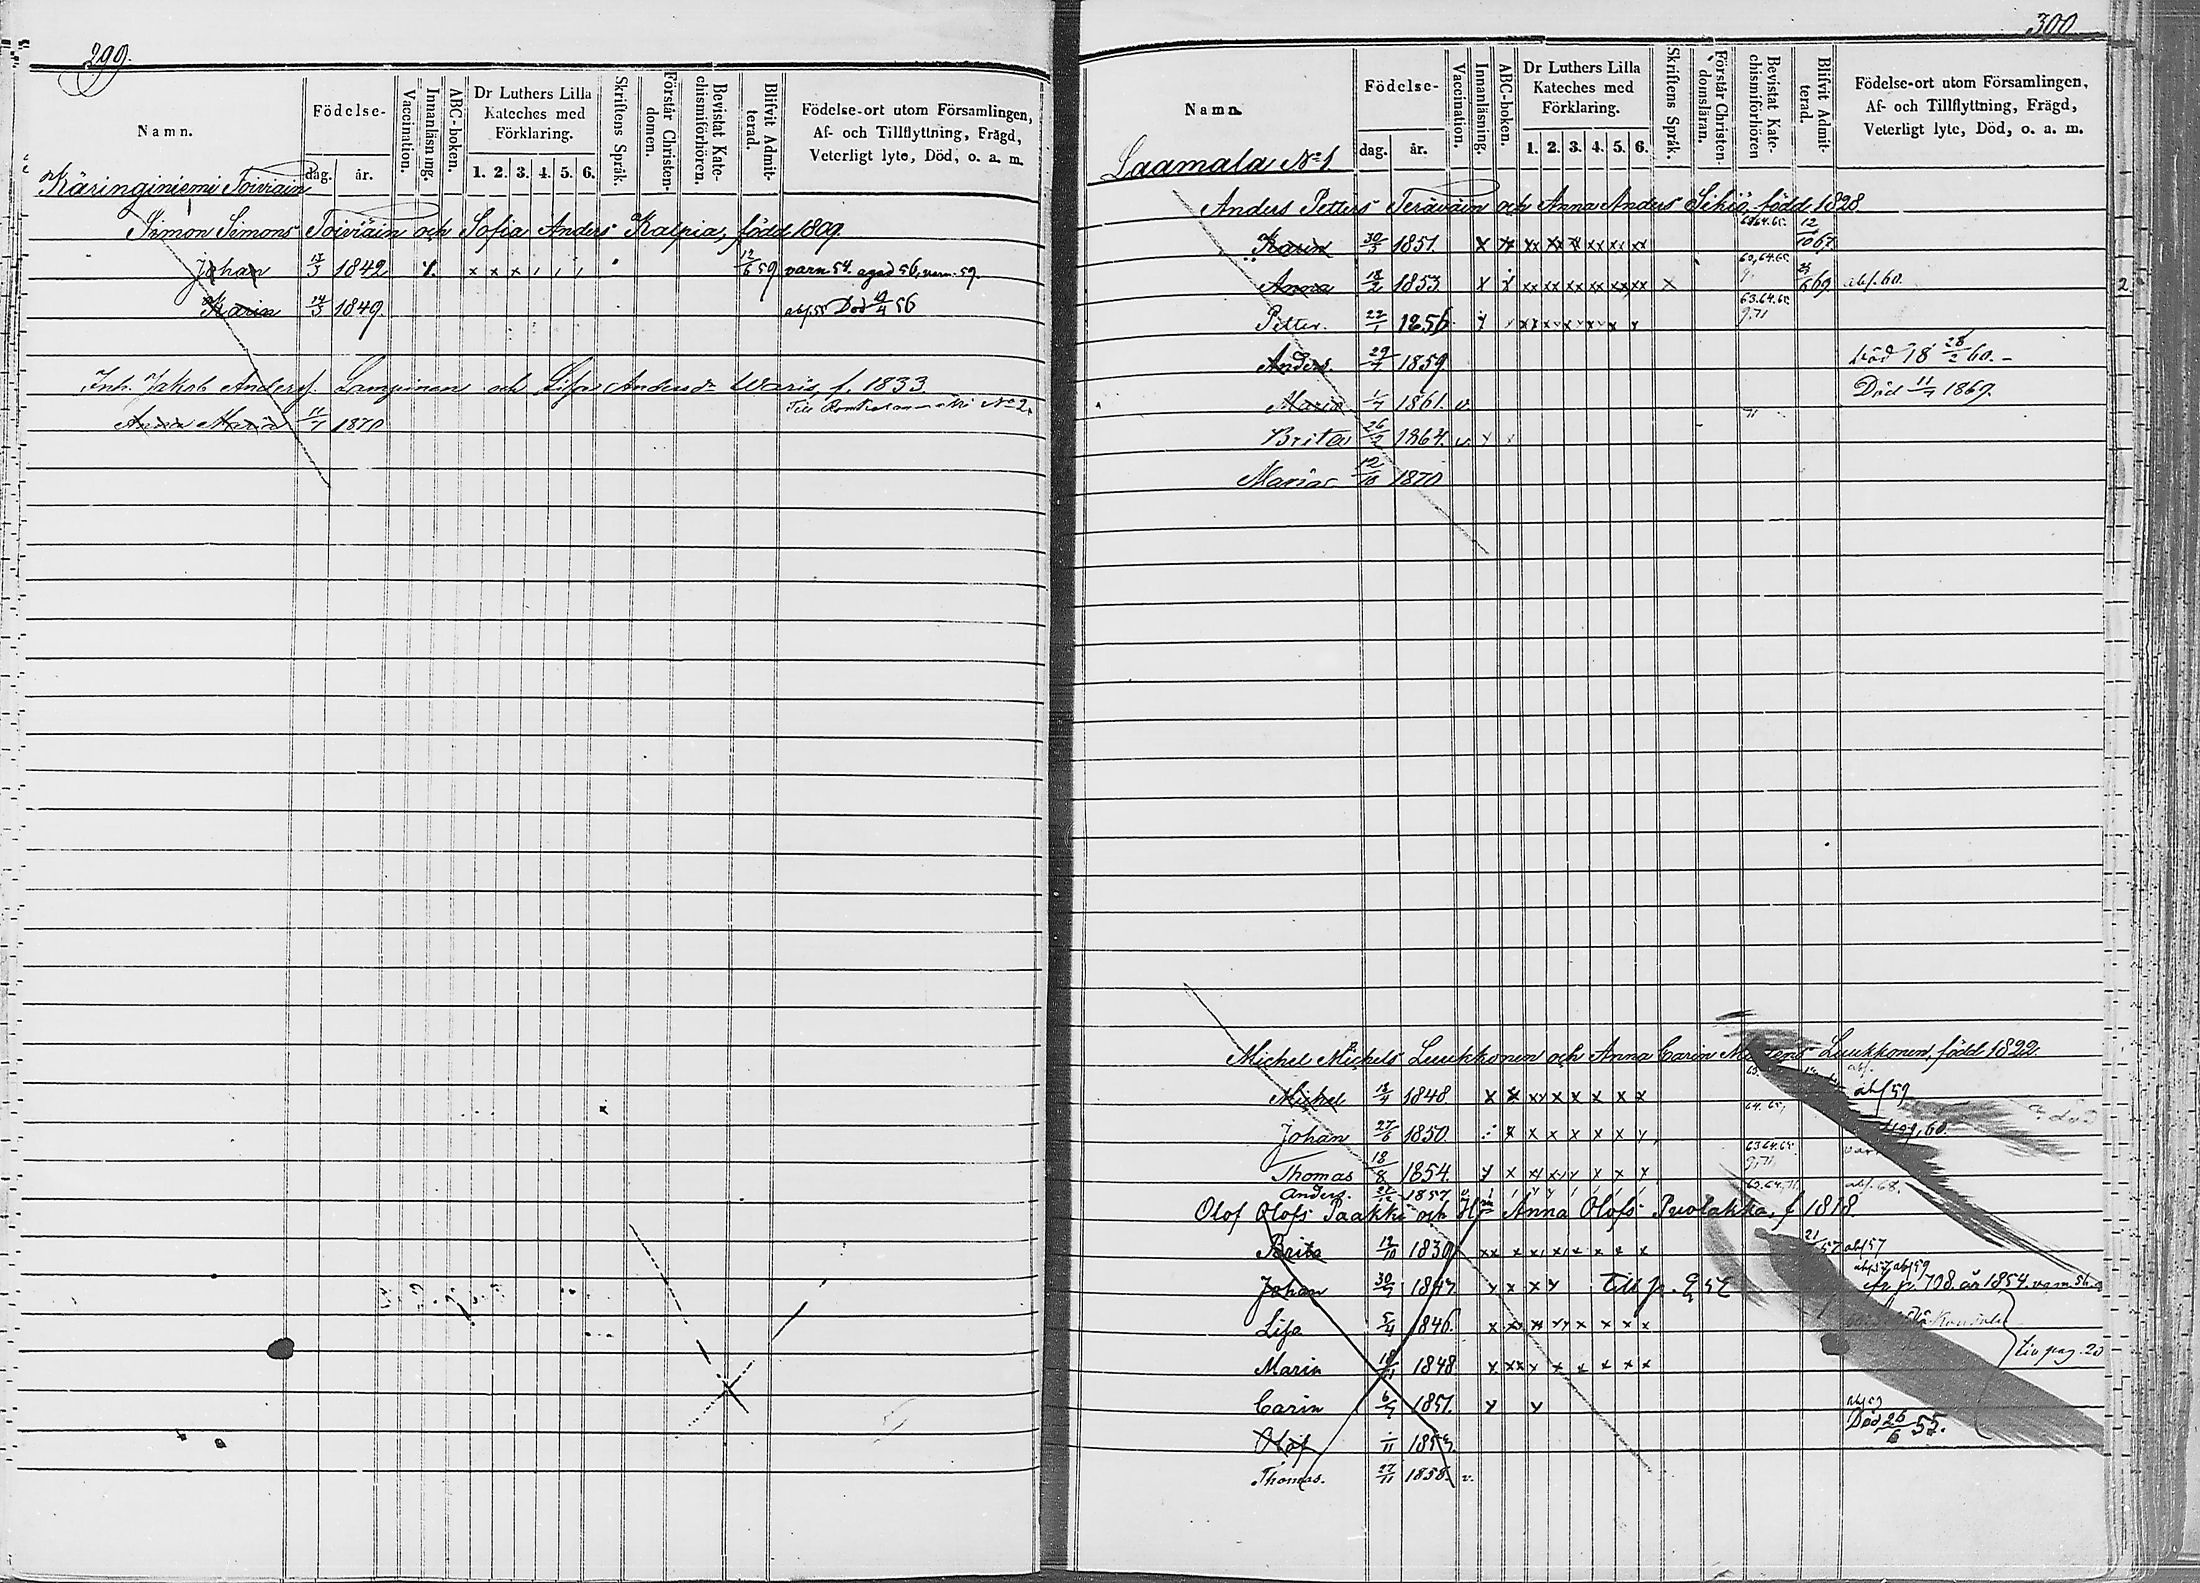 299.
Namn.
Födelse-
dag. år.
Vaccination.
Innanläsning.
ABC-boken.
Dr Luthers Lilla Kateches med Förklaring.
1. 2. 3. 4. 5. 6.
Skriftens Språk.
Förstår Christendomen.
Bevistat Katechismiförhören.
Blifvit Admitterad.
Födelse-ort utom Församlingen,
Af- och Tillflyttning, Frägd,
Veterligt lyte, Död, o. a. m.
Käringiniemi Toiviain
Simon Simons Toiviain och Sofia Anders Kalpia, född 1809.
Johan 13/3 1842 x x x 12/6 59 varn 54. agad 56, varn. 59.
Karin 14/3 1849. abs. 55 Död 19/4 56
Inh. Jakob Anderss. Lampinen och Lisa Andersdr Waris, f. 1833.
Anna Maria 11/7 1870
300
Namn.
Födelse-
dag. år.
Vaccination.
Innanläsning.
ABC-boken.
Dr Luthers Lilla Kateches med Förklaring.
1. 2. 3. 4. 5. 6.
Skriftens Språk.
Förstår Christendomsläran.
Bevistat Katechismiförhören
Blifvit Admitterad.
Födelse-ort utom Församlingen,
Af- och Tillflyttning, Frägd,
Veterligt lyte, Död, o. a. m.
Laamala No 1
Anders Petters Teräväin och Anna Anders Sikiö, född 1828
Karin 30/3 1851. x xx xx xx xx xx xx 63.64.65. 12/10 67.
Anna 18/2 1853 x x xx xx xx xx xx xx x 69. abs. 60.
Petter. 22/1 1856. 63.64.65 9.71
Anders. 29/4 1859 Död 18 28/2 60. -
Maria 1/7 1861. v. Död 11/7 1869.
Brita 26/2 1864. v. 71
Maria 12/10 1870
Michel Michels Luukkonen och Anna Carin Luukkonen, född 1822.
Michel 1848. x x x x x x x abs 59
Johan 27/6 1850. x x x x x x 64.65, 60.
Thomas 18/8 1854. 63.64.65. 9.71
Anders. 1857. v. 63.64.71. abs. 68.
Olof Olofs Paakki och Anna Olofs Puolakka, f 1818.
Brita 12/10 1839 xx x x x x x x 21 57 abs 57
Johan 30/7 1843. abs 57 abs 59 p. 708. år 1854. varn. 56.
Lisa 5/4 1846. x
Maria 18/11 1848. x xx x x x x x x pag. 20
Carin 6/7 1851. abs 59
Olof 1/11 1853. Död 26/6 55.
Thomas. 27/11 1858. v.